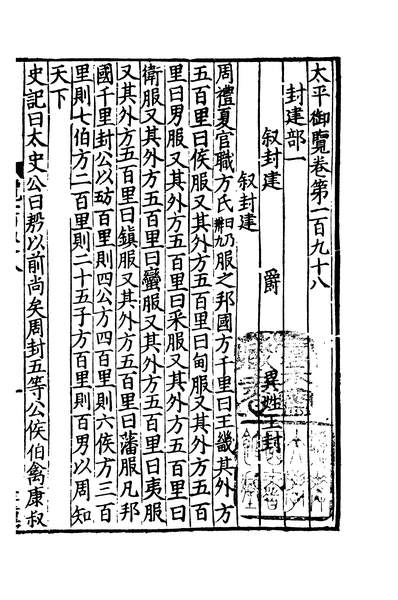 太平御覽卷第一百九十八
封建部一
叙封建　爵　異姓王封
叙封建
周禮夏官職方氏曰乃辨九服之邦國方千里曰王畿其外方
五百里曰侯服又其外方五百里曰甸服又其外方五百
里曰男服又其外方五百里曰采服又其外方五百里曰
衛服又其外方五百里曰蠻服又其外方五百里曰夷服
又其外方五百里曰鎮服又其外方五百里曰藩服凡邦
國千里封公以方五百里則四公方四百里則六侯方三百
里則七伯方二百里則二十五子方百里則百男以周知
天下
史記曰太史公曰殷以前尚矣周封五等公侯伯禽康叔